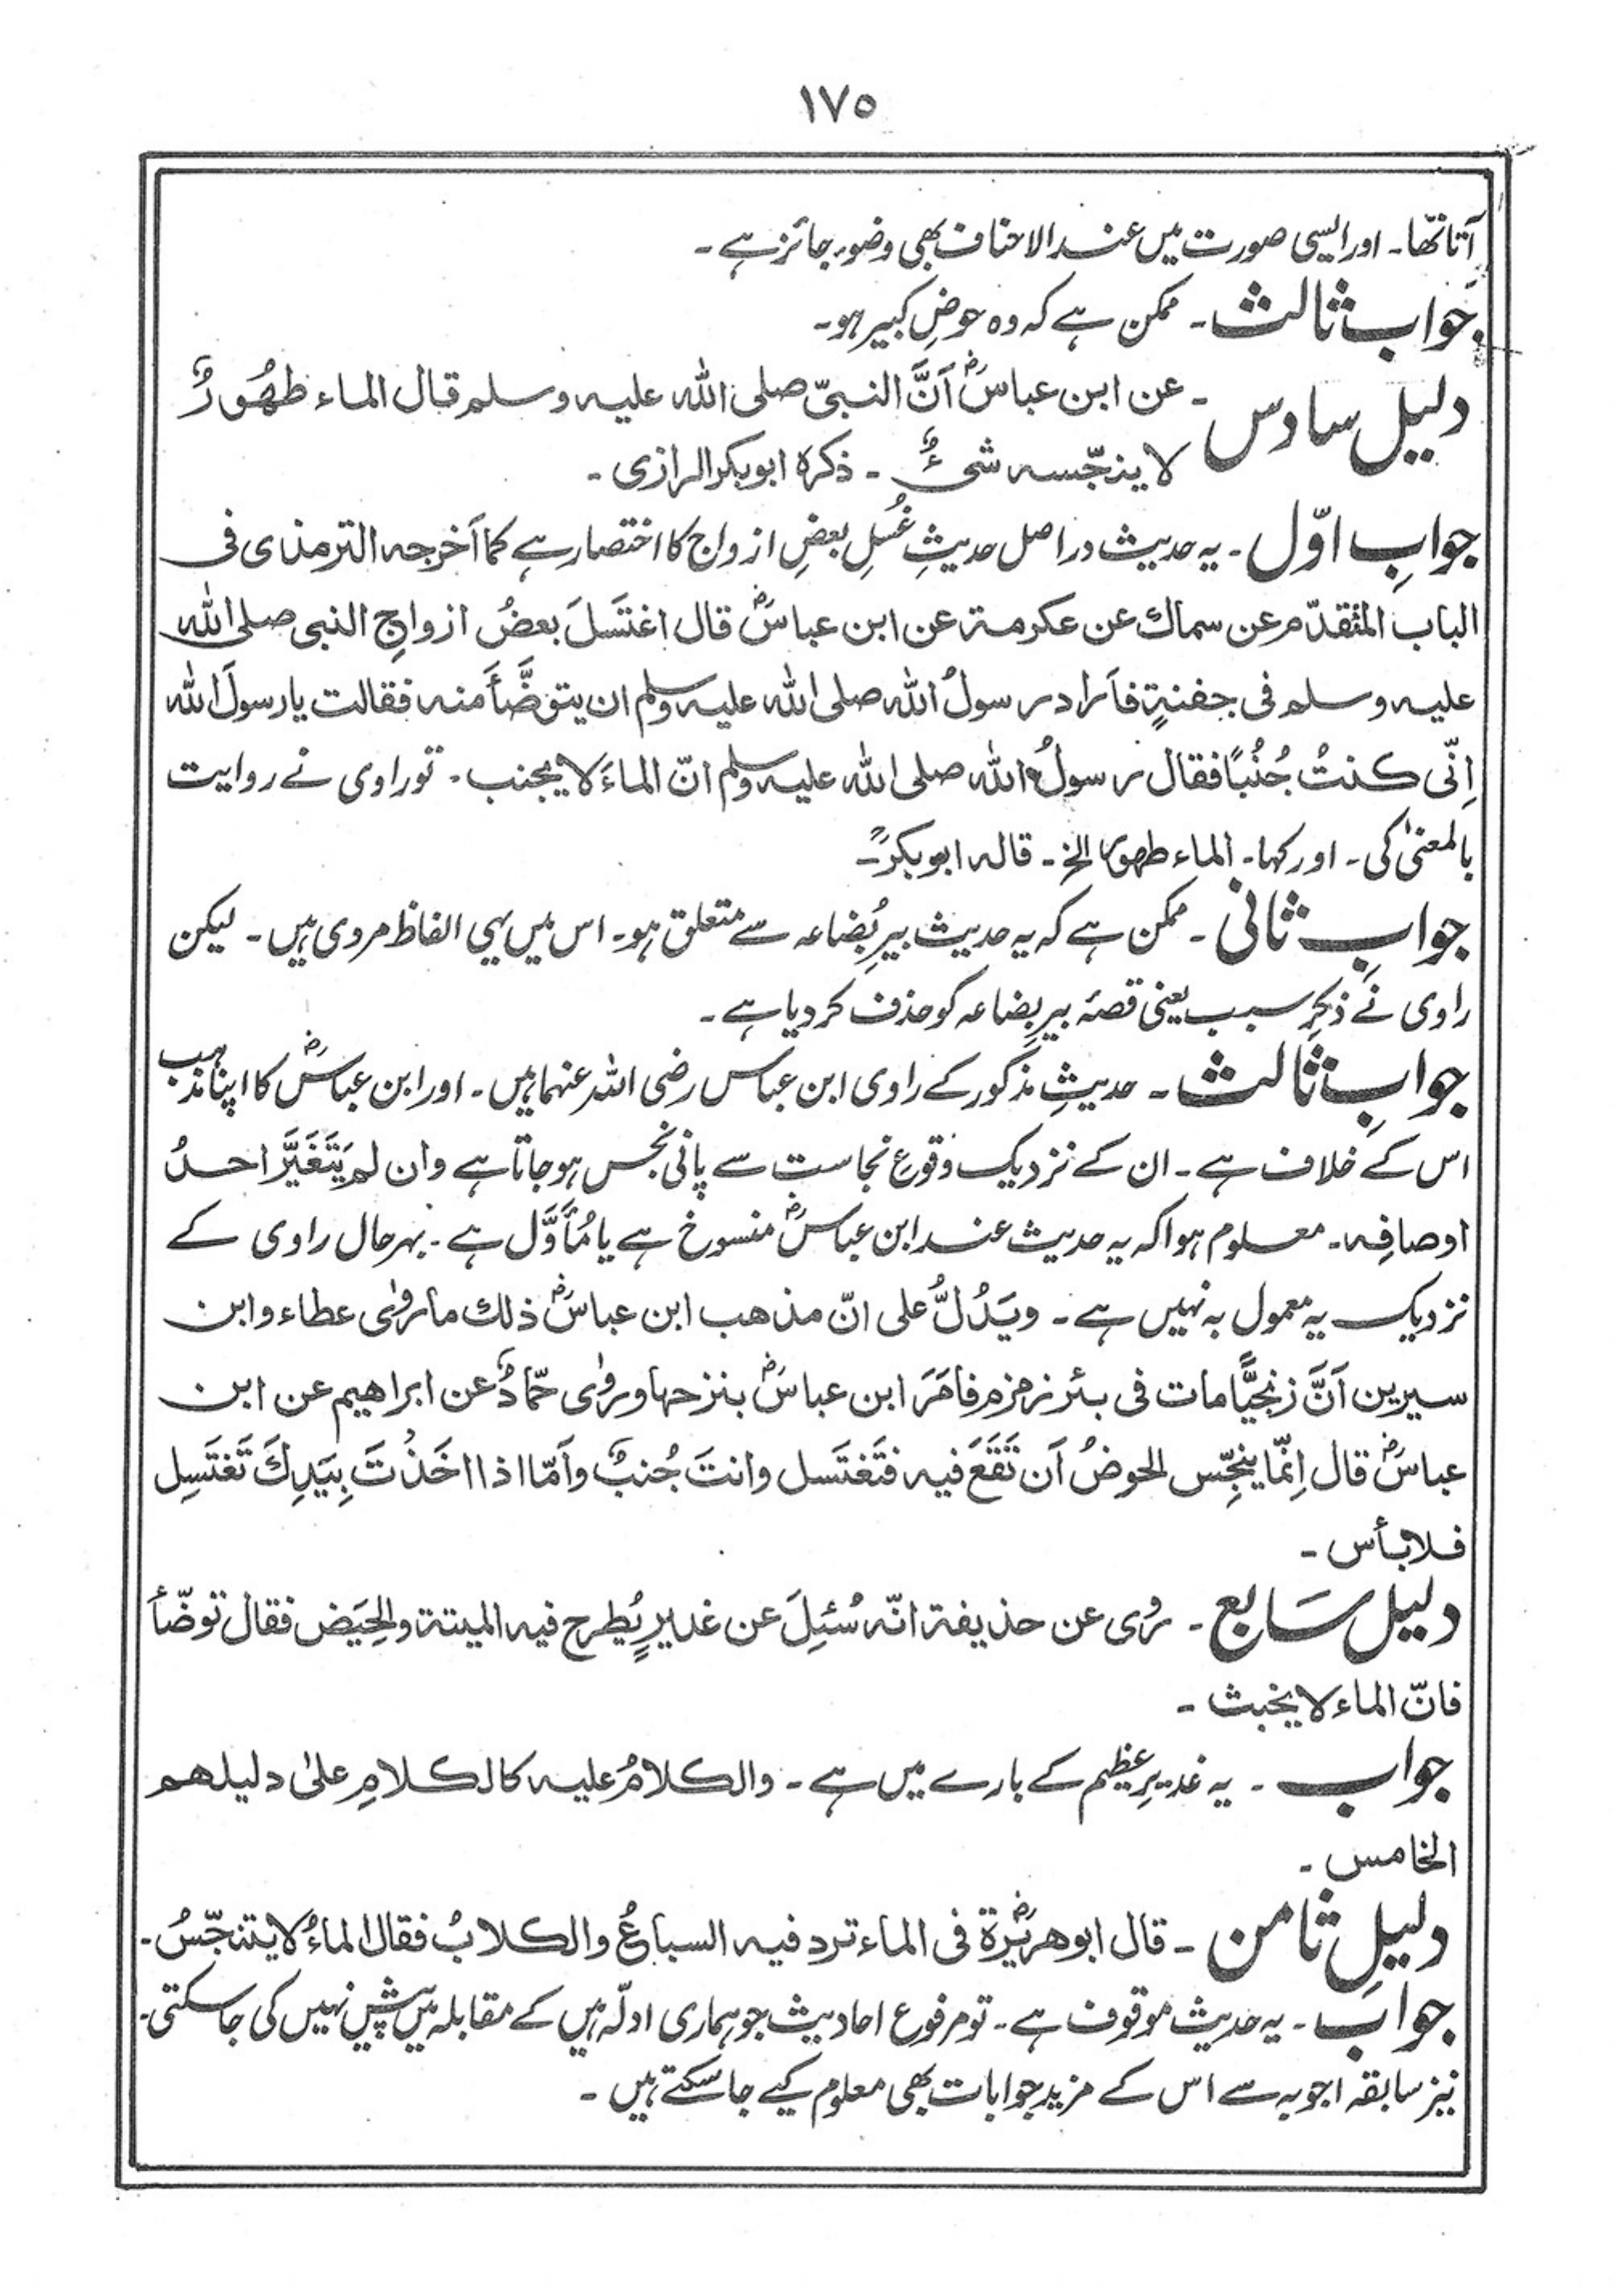 ١٧٥
آتا تھا۔ اور ایسی صورت میں عند الاحناف بھی وضوء جائز ہے ۔
جواب ثالث ۔ ممکن ہے کہ وہ حوضِ کبیر ہو۔
دلیل سادس ۔ عن ابن عباسؓ اَنَّ النبیّ صلی اللہ علیہ وسلم قال الماء طھُوۡرٌ
لا ینجّسہ شیءٌ ۔ ذکرہ ابوبکر الرازی ۔
جوابِ اوّل ۔ یہ حدیث در اصل حدیثِ غُسلِ بعضِ ازواج کا اختصار ہے کما اَخرجہ الترمذی فی
الباب المتقدّم عن سماك عن عکرمۃ عن ابن عباسؓ قال اغتَسَلَ بعضُ ازواجِ النبی صلی اللہ
علیہ وسلم فی جفنۃٍ فاَراد رسولُ اللہ صلی اللہ علیہ وسلم ان یتوضَّأَ منہ فقالت یا رسولَ اللہ
اِنّی کنتُ جُنُبًا فقال رسولُ اللہ صلی اللہ علیہ وسلم انّ الماءَ لا یجنب ۔ تو راوی نے روایت
بالمعنیٰ کی ۔ اور کہا ۔ الماء طھورٌ الخ ۔ قالہ ابوبکرؒ ۔
جوابِ ثانی ۔ ممکن ہے کہ یہ حدیث بیرِ بُضاعہ سے متعلق ہو۔ اس میں یہی الفاظ مروی ہیں ۔ لیکن
راوی نے ذکرِ سبب یعنی قصۂ بیرِ بضاعہ کو حذف کر دیا ہے ۔
جوابِ ثالث ۔ حدیثِ مذکور کے راوی ابن عباس رضی اللہ عنہما ہیں ۔ اور ابن عباسؓ کا اپنا مذہب
اس کے خلاف ہے ۔ ان کے نزدیک وقوعِ نجاست سے پانی نجس ہو جاتا ہے وان لم یَتَغَیَّر احدُ
اوصافِہ ۔ معلوم ہوا کہ یہ حدیث عند ابن عباسؓ منسوخ ہے یا مُأَوَّل ہے ۔ بہرحال راوی کے
نزدیک یہ معمول بہ نہیں ہے ۔ ویَدُلُّ علی انّ مذھب ابن عباسؓ ذلك ما رویٰ عطاء وابن
سیرین اَنَّ زنجیًّا مات فی بئر زمزم فامَرَ ابن عباسؓ بنزحھا ورویٰ حمّادٌ عن ابراھیم عن ابن
عباسؓ قال اِنّما ینجِّس الحوضُ اَن تَقَعَ فیہ فتَغتَسل وانتَ جُنبٌ واَمّا اذا اخَذۡتَ بِیَدِكَ تَغتَسِل
فلا بأس ۔
دلیل سَابع ۔ رُوی عن حذیفۃ انّہ سُئِلَ عن غدیرٍ یُطرح فیہ المیتۃ والحِیَض فقال توضّأ
فانّ الماء لا یخبث ۔
جواب ۔ یہ غدیرِ عظیم کے بارے میں ہے ۔ والکلامُ علیہ کالکلامِ علیٰ دلیلھم
الخامس ۔
دلیلِ ثامن ۔ قال ابوھریرۃؓ فی الماء ترد فیہ السباعُ والکلابُ فقال الماءُ لا یتنجّسُ ۔
جواب ۔ یہ حدیث موقوف ہے ۔ تو مرفوع احادیث جو ہماری ادلّہ ہیں کے مقابلہ میں پیش نہیں کی جاسکتی ۔
نیز سابقہ اجوبہ سے اس کے مزید جوابات بھی معلوم کیے جا سکتے ہیں ۔